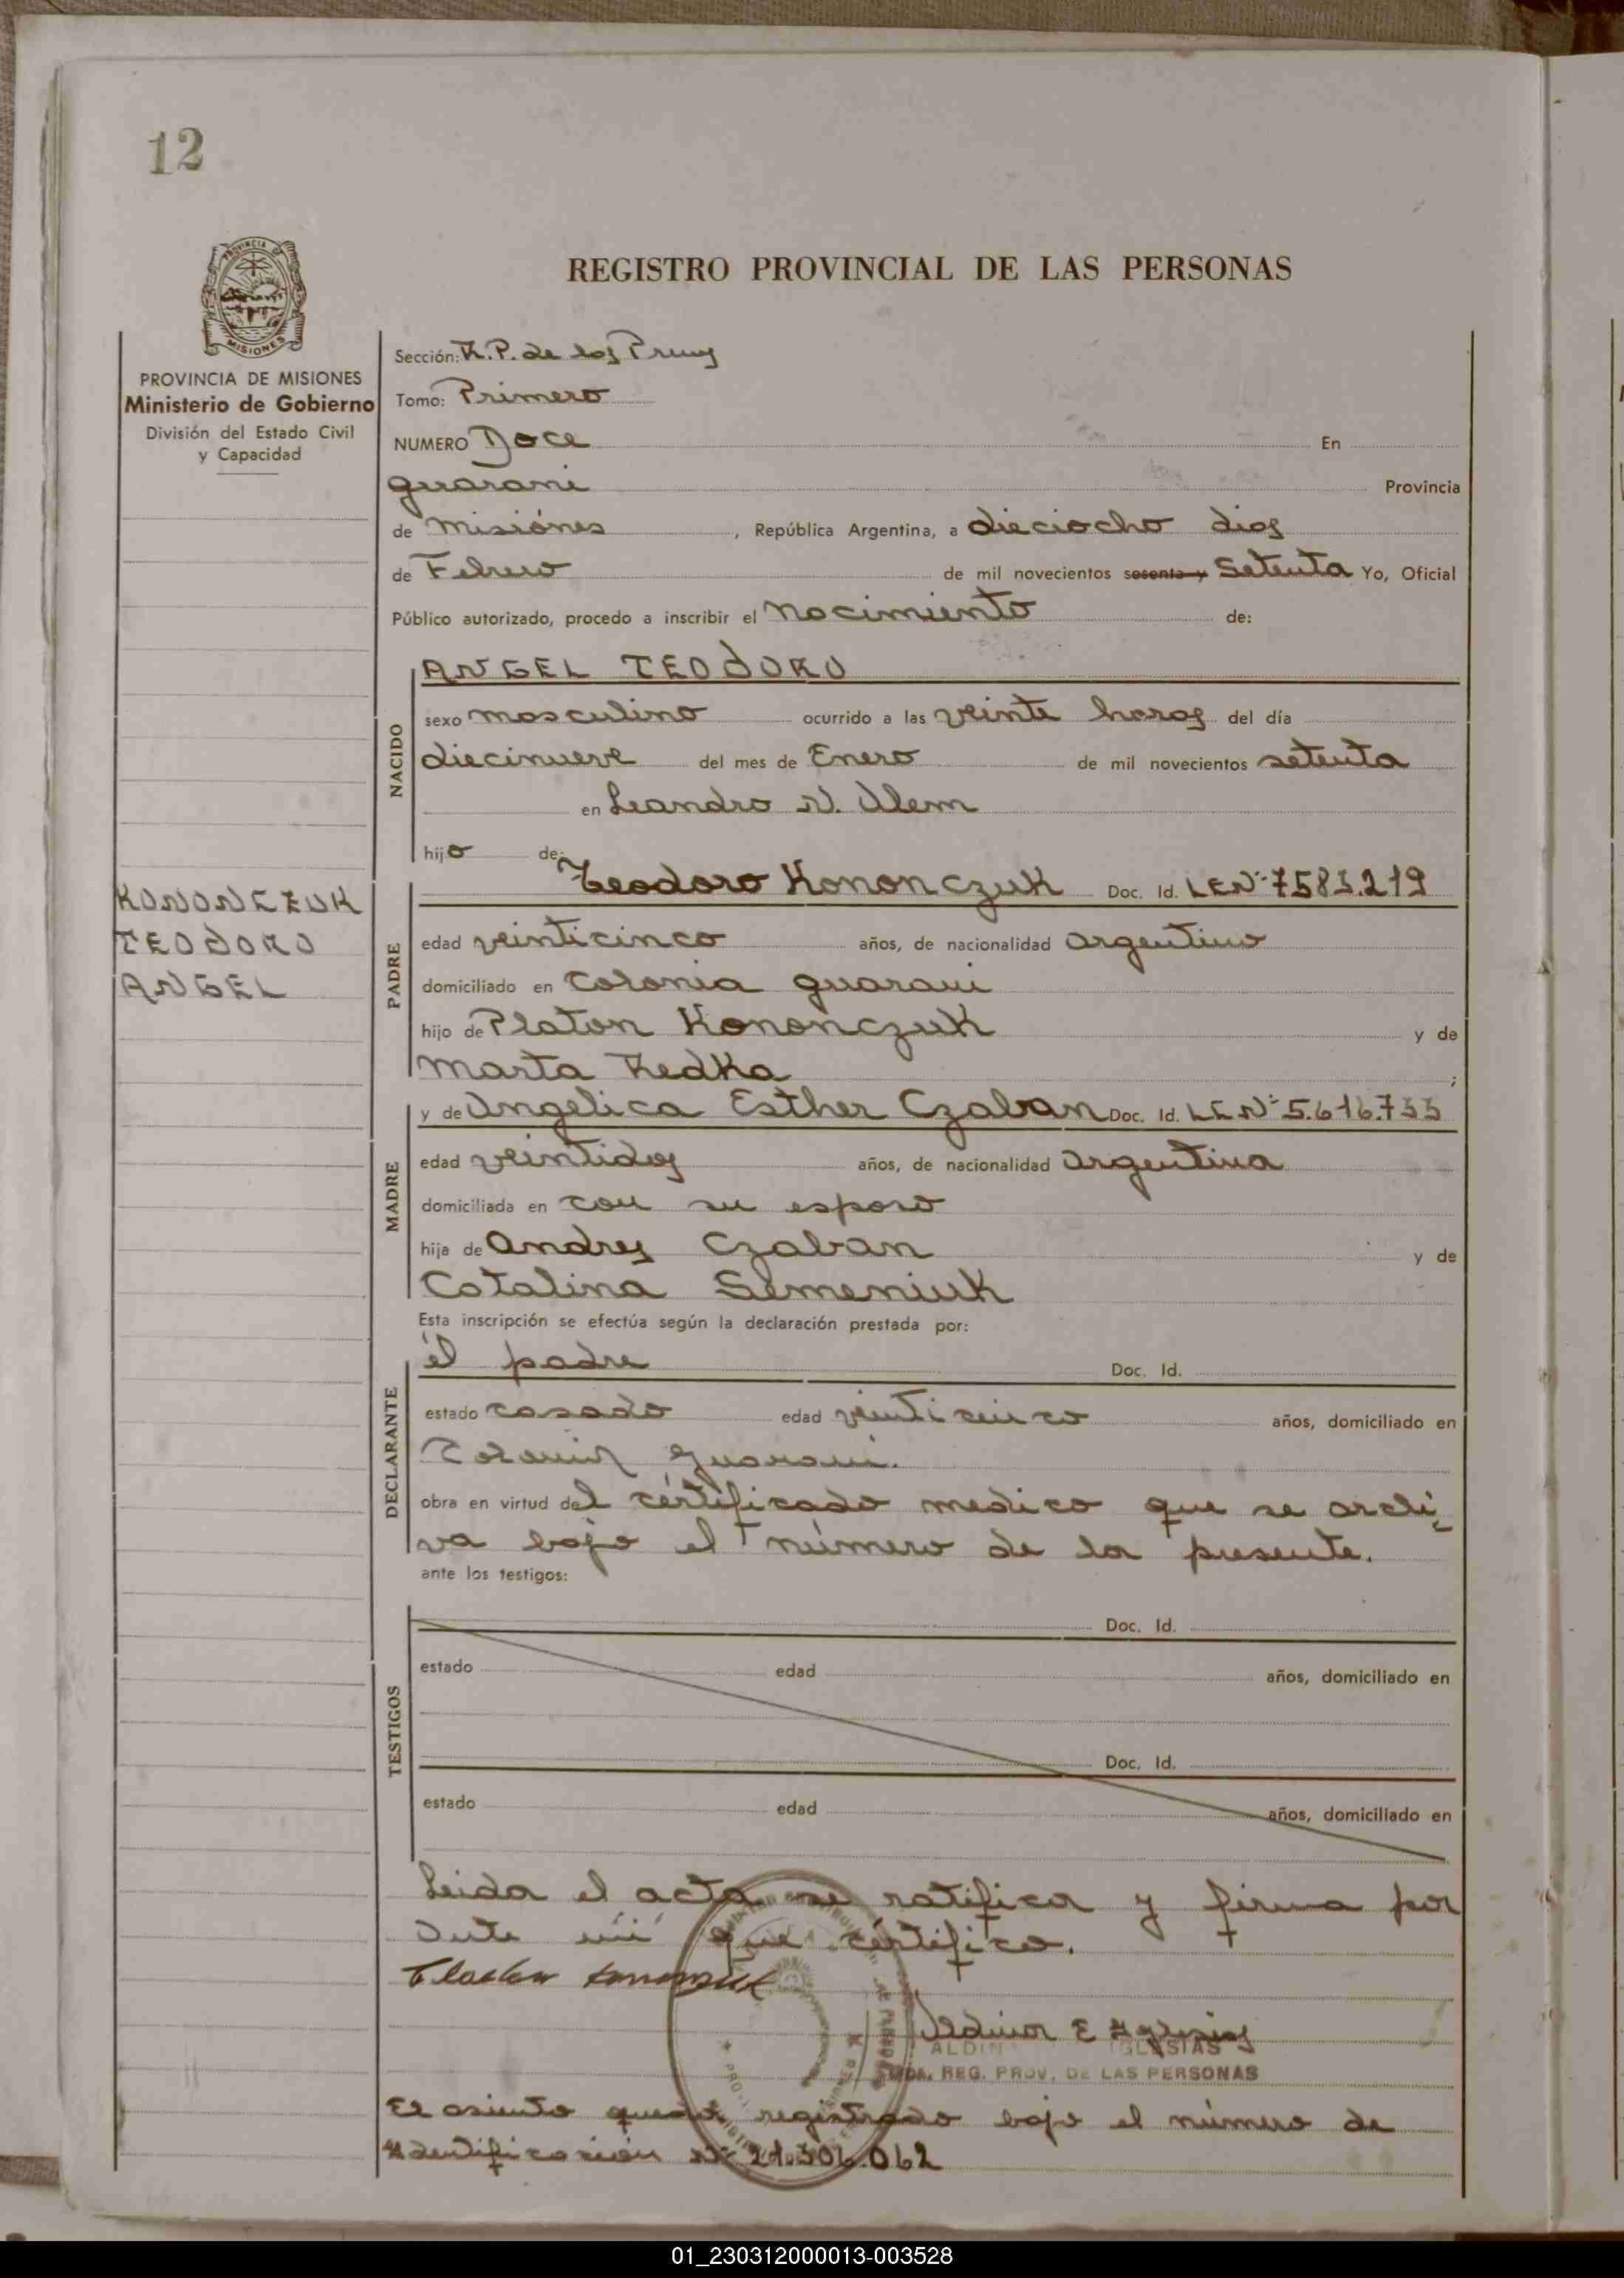 12
PROVINCIA DE
MISIONES
REGISTRO PROVINCIAL DE LAS PERSONAS
PROVINCIA DE MISIONES
Ministerio de Gobierno
División del Estado Civil
y Capacidad
Sección: R.P. de las
Tomo: Primero
NUMERO Doce En
Guarani Provincia
de Misiónes, República Argentina, a dieciocho dias
de Febrero de mil novecientos sesenta y Setenta Yo, Oficial
Público autorizado, procedo a inscribir el Nacimiento de:
ANGEL TEODORO
NACIDO
sexo masculino ocurrido a las veinte horas del día
diecinueve del mes de Enero de mil novecientos setenta
en Leandro N. Alem
hijo de:
KONONCZUK
TEODORO
ANGEL
PADRE
Teodoro Kononczuk Doc. Id. LEN° 7583.219
edad veinticinco años, de nacionalidad argentino
domiciliado en Colonia guarani
hijo de Platon Kononczuk y de
Marta Redka ;
MADRE
y de Angelica Esther Czaban Doc. Id. LEN° 5.616.733
edad veintidos años, de nacionalidad argentina
domiciliada en con su esposo
hija de Andres Czaban y de
Catalina Semeniuk
Esta inscripción se efectúa según la declaración prestada por:
DECLARANTE
él padre Doc. Id.
estado casado edad veinticinco años, domiciliado en
Colonia Guarani.
obra en virtud del certificado medico que se archi-
va bajo el número de la presente.
ante los testigos:
TESTIGOS
Doc. Id.
estado edad años, domiciliado en
Doc. Id.
estado edad años, domiciliado en
Leida el acta se ratifica y firma por
Ante mi que certifico.
Aldina E Iglesias
ALDIN IGLESIAS
REG. PROV. DE LAS PERSONAS
El asiento queda registrado bajo el número de
Identificación N° 21.306.062
01_230312000013-003528